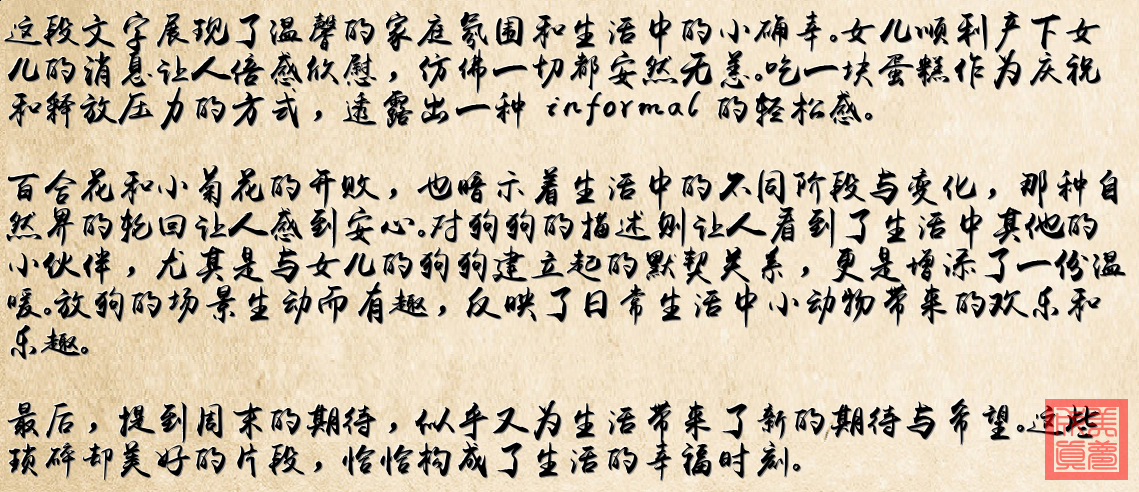 这段文字展现了温馨的家庭氛围和生活中的小确幸。女儿顺利产下女
儿的消息让人倍感欣慰，仿佛一切都安然无恙。吃一块蛋糕作为庆祝
和释放压力的方式，透露出一种 informal 的轻松感。
百合花和小菊花的开败，也暗示着生活中的不同阶段与变化，那种自
然界的轮回让人感到安心。对狗狗的描述则让人看到了生活中其他的
小伙伴，尤其是与女儿的狗狗建立起的默契关系，更是增添了一份温
暖。放狗的场景生动而有趣，反映了日常生活中小动物带来的欢乐和
乐趣。
最后，提到周末的期待，似乎又为生活带来了新的期待与希望。这些
琐碎却美好的片段，恰恰构成了生活的幸福时刻。